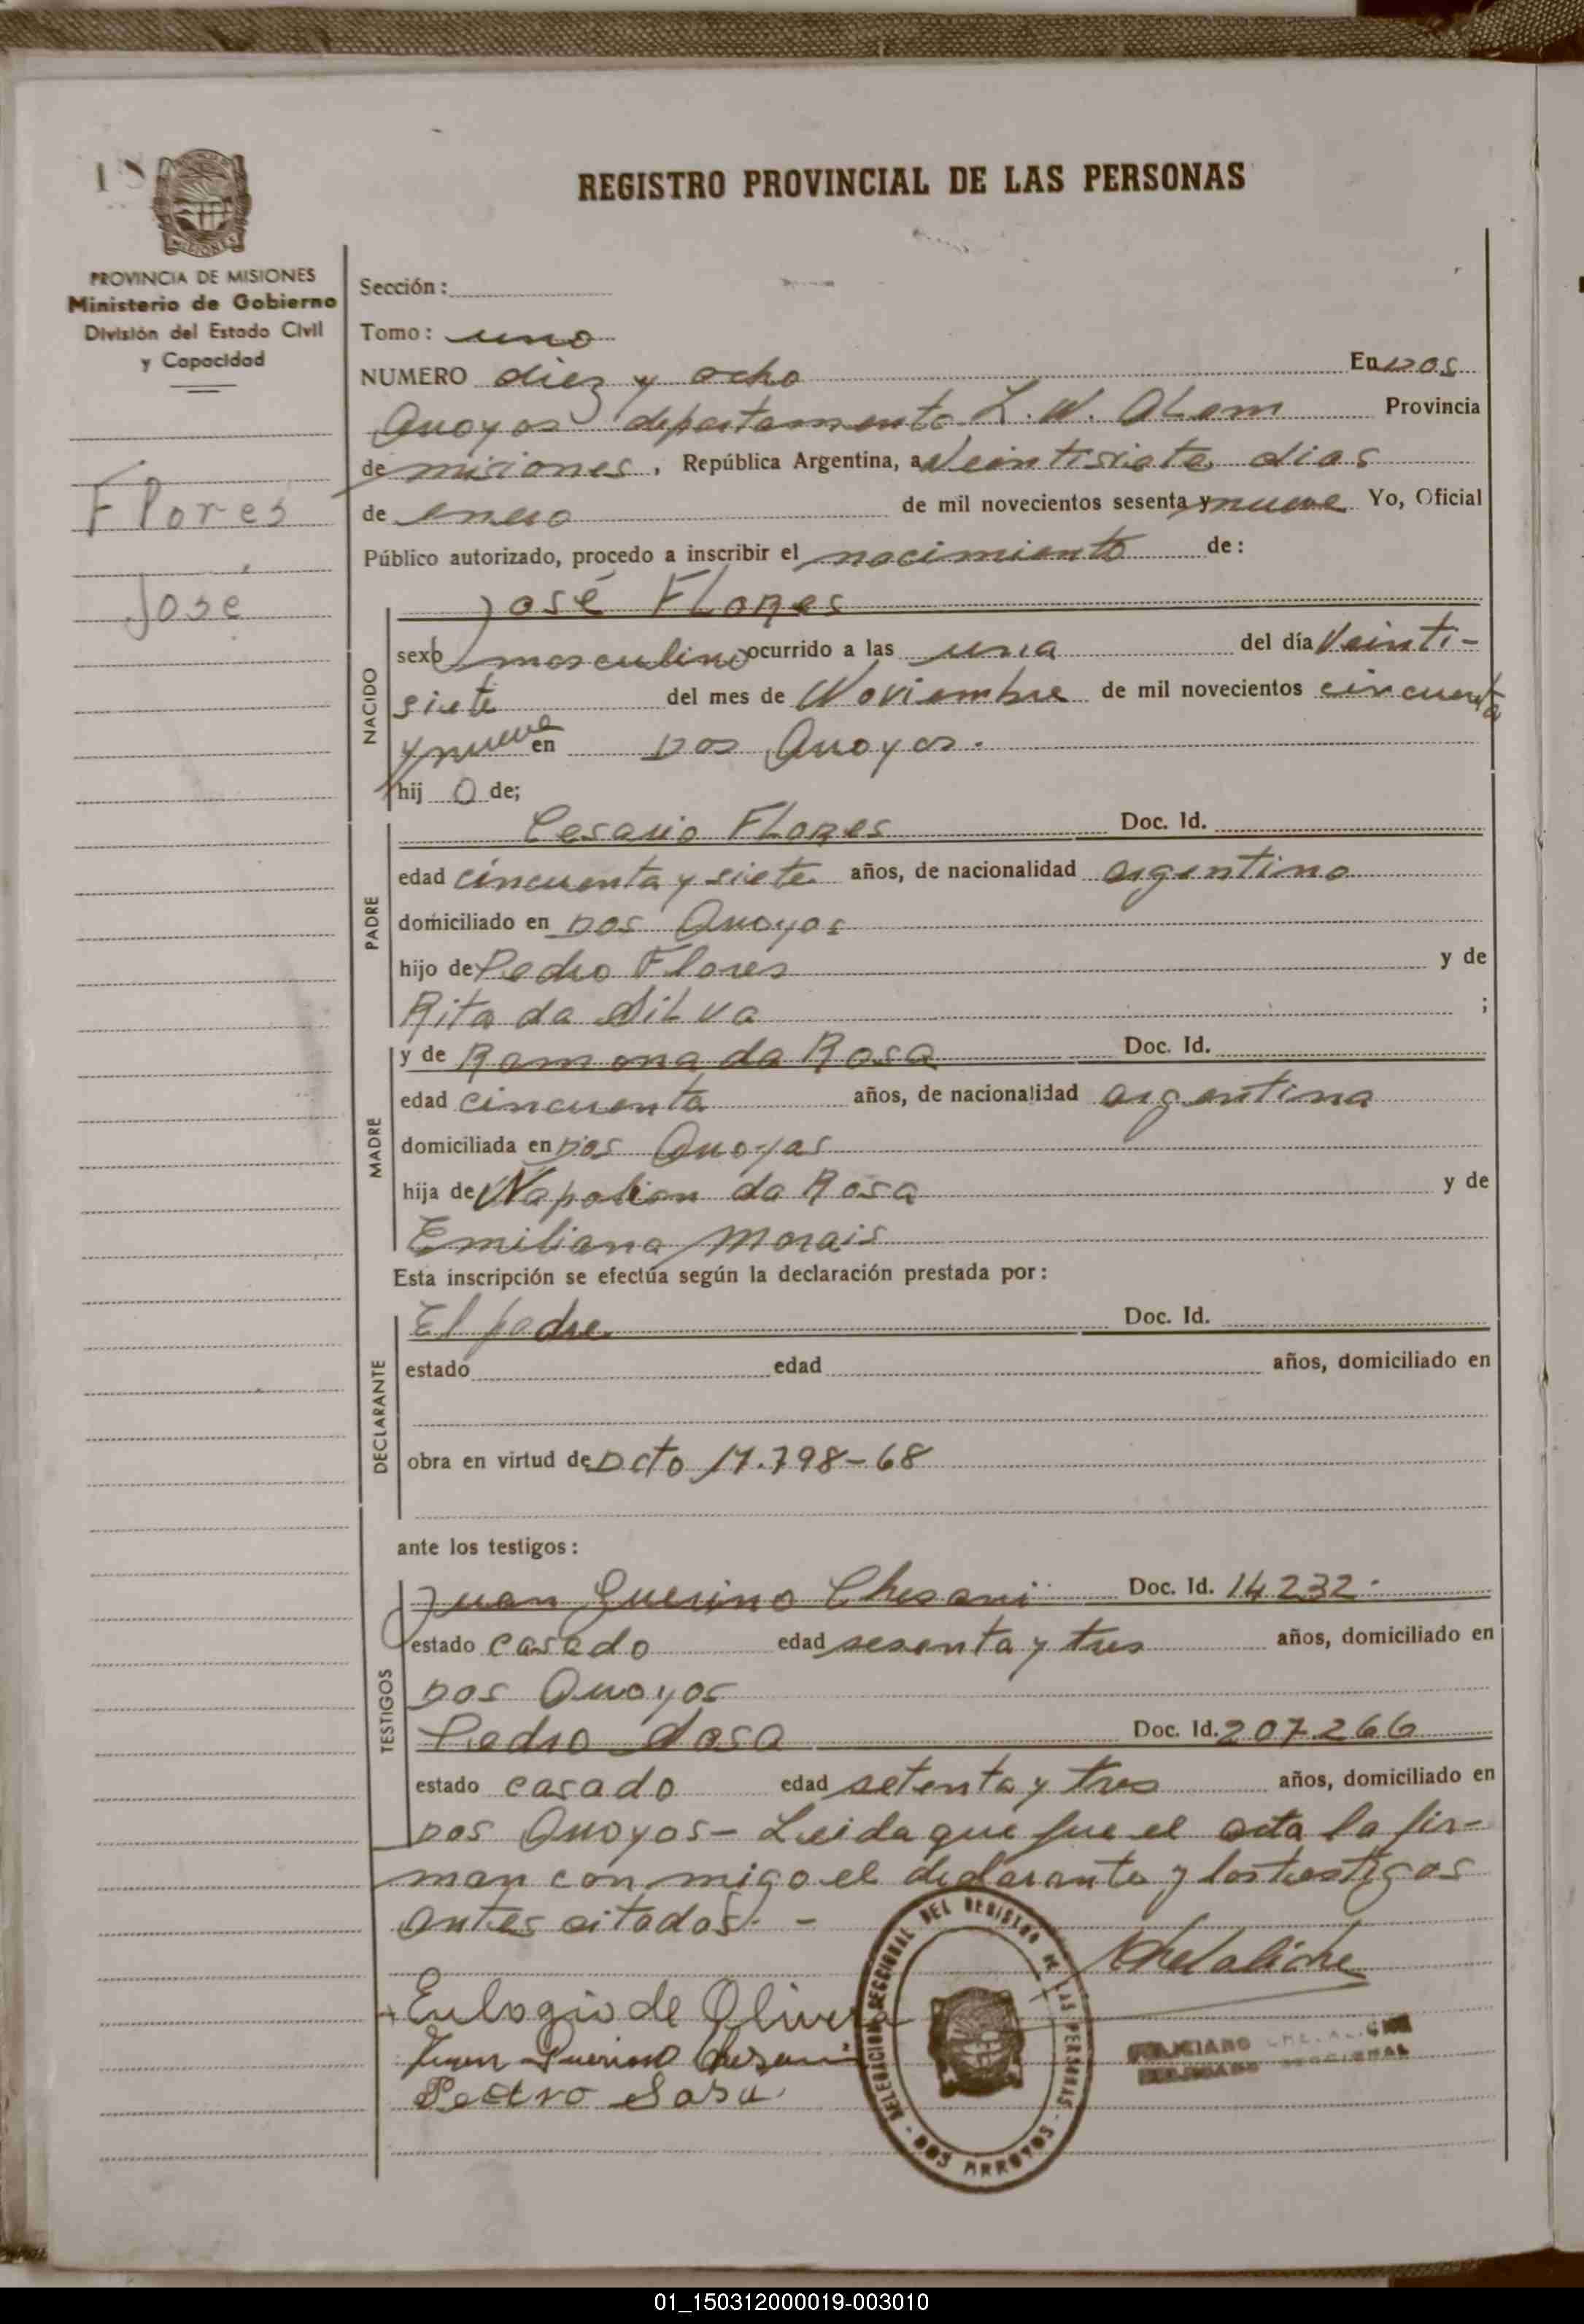 18
REGISTRO PROVINCIAL DE LAS PERSONAS
PROVINCIA DE MISIONES
Ministerio de Gobierno
División del Estado Civil
y Capacidad
Flores
José
Sección:
Tomo: uno
NUMERO diez y ocho En Dos
Arroyos departamento L. N. Alem Provincia
de misiones, República Argentina, a Veintisiete dias
de enero de mil novecientos sesenta y nueve Yo, Oficial
Público autorizado, procedo a inscribir el nacimiento de:
NACIDO
José Flores
sexo masculino ocurrido a las una del día Veinti-
siete del mes de Noviembre de mil novecientos cincuenta
y nueve en Dos Arroyos.
hij o de;
PADRE
Cesario Flores Doc. Id.
edad cincuenta y siete años, de nacionalidad argentino
domiciliado en Dos Arroyos
hijo de Pedro Flores y de
Rita da Silva ;
MADRE
y de Ramona da Rosa Doc. Id.
edad cincuenta años, de nacionalidad argentina
domiciliada en Dos Arroyos
hija de Napolion da Rosa y de
Emiliana Morais
Esta inscripción se efectúa según la declaración prestada por:
DECLARANTE
El padre Doc. Id.
estado edad años, domiciliado en
obra en virtud de Dcto 17.798-68
ante los testigos:
TESTIGOS
Juan Guerino Chesani Doc. Id. 14.232.
estado casado edad sesenta y tres años, domiciliado en
Dos Arroyos
Pedro Sosa Doc. Id. 207.266
estado casado edad setenta y tres años, domiciliado en
Dos Arroyos - Leida que fue el acta la fir-
man con migo el declarante y los testigos
antes citados. -
Eulogio de Olivera
Juan Guerino Chesani
Pedro Sosa
DELEGACION SECCIONAL DEL REGISTRO DE LAS PERSONAS
- DOS ARROYOS -
DELEGADO SECCIONAL
01_150312000019-003010